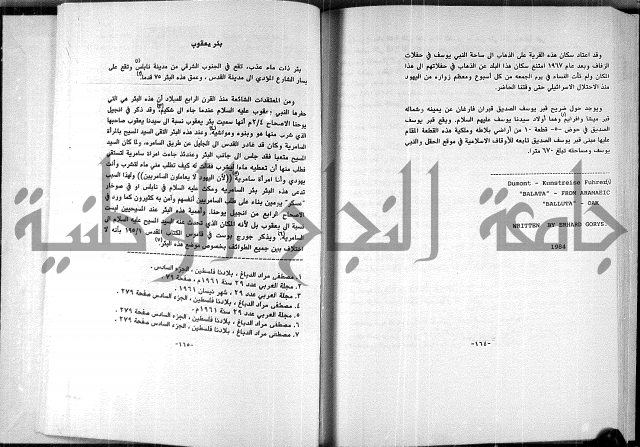 وقد اعتاد سكان هذه القرية على الذهاب الى ساحة النبي يوسف في حفلات
الزفاف وبعد عام ١٩٦٧ امتنع سكان هذا البلد عن الذهاب في حفلاتهم الى هذا
المكان ولم تأت النساء في يوم الجمعه من كل أسبوع ومعظم زواره من اليهود
منذ الاحتلال الاسرائيلي حتى وقتنا الحاضر.
ويوجد حول ضريح قبر يوسف الصديق قبران فارغان عن يمينه وشماله
قبر ميشا وافرايم وهما أولاد سيدنا يوسف عليهم السلام. ويقع قبر يوسف
الصديق في حوض ٥٠ قطعة ١٠ من أراضي بلاطه وملكية هذه القطعة المقام
عليها مبنى قبر يوسف الصديق تابعه للأوقاف الاسلامية في موقع الحقل والنبي
يوسف ومساحته تبلغ ٦٧٠ مترا.
Dumont - Kunstreise Fuhred
"BALATA" - FROM ARAMAEIC
"BALLUTA" - OAK
WRITTEN BY ERHARD GORYS.
1984
-١٦٤-
بئر يعقوب
بئر ذات ماء عذب، تقع في الجنوب الشرقي من مدينة نابلس وتقع على
يسار الشارع المؤدي الى مدينة القدس ، وعمق هذه البئر ٧٥ قدما.
ومن المعتقدات الشائعة منذ القرن الرابع للميلاد أن هذه البئر هي التي
حفرها النبي يعقوب عليه السلام عندما جاء الى شكيم. وقد ذكر في انجيل
يوحنا الاصحاح ٢/٤ م أنها سميت بئر يعقوب نسبة الى سيدنا يعقوب صاحبها
الذي شرب منها هو وبنوه ومواشيه. وعند هذه البئر التقى السيد المسيح بالمرأة
السامرية وكان قد غادر القدس الى الجليل عن طريق السامره، ولما كان السيد
المسيح متعبا فقد جلس الى جانب البئر وعندئذ جاءت امرأة سامرية تستقي
طلب منها أن تعطيه ماء
يهودي وأنا امرأة سامرية ((لأن اليهود لا يعاملون السامريين)) ولهذا السبب
تدعى هذه البئر بئر السامرية ومكث عليه السلام في نابلس او في
"سكر" يومين بناء على طلب السامريين أنفسهم وآمن به كثيرون كما ورد في
الاصحاح الرابع من انجيل يوحنا. وأهمية هذه البئر عند المسيحيين ليست
نسبة الى يعقوب بل لأنه المكان الذي تحدث عنه السيد المسيح عليه السلام الى
السامرية. ويذكر جورج بوست في قاموس الكتاب المقدس ١٩٥/١ بأنه لا
اختلاف بين جميع الطوائف بخصوص موضع هذه البئر.
١. مصطفى مراد الدباغ ، بلادنا فلسطين ، الجزء السادس .
٢. مجلة العربي عدد ٢٩ سنة ١٩٦١م ، صفحة ٧٩.
٣. مجلة العربي عدد ٢٩ ، شهر نيسان ١٩٦١ .
٤. مصطفى مراد الدباغ ، بلادنا فلسطين، الجزء السادس صفحة ٢٧٩ .
٥. مجلة العربي عدد ٢٩ سنة ١٩٦١م .
٦. مصطفى مراد الدباغ ، بلادنا فلسطين ، الجزء السادس صفحة ٢٧٩ .
٧. مصطفى مراد الدباغ ، بلادنا فلسطين، الجزء السادس صفحة ٢٧٩ .
-١٦٥-
جامعة النجاح الوطنية